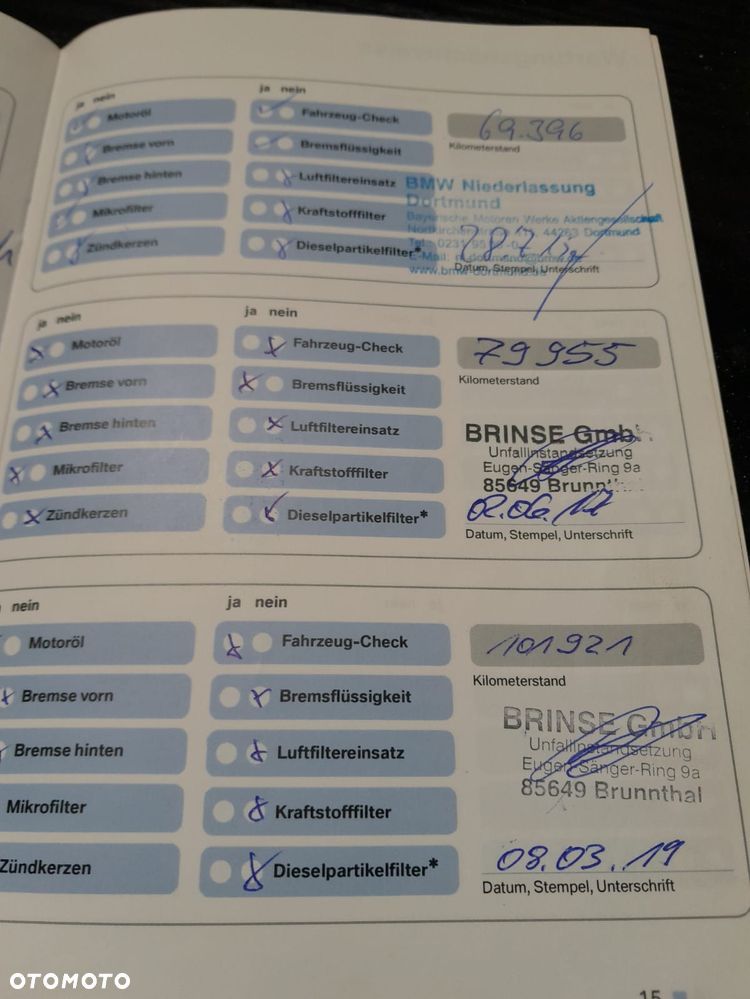 ja nein
ja nein
Motoröl
Fahrzeug-Check
69.396
Bremse vorn
Bremsflüssigkeit
Kilometerstand
Bremse hinten
Luftfiltereinsatz
BMW Niederlassung
Dortmund
Mikrofilter
Kraftstofffilter
Bayerische Motoren Werke Aktiengesellschaft
44263 Dortmund
Zündkerzen
Dieselpartikelfilter*
Datum, Stempel, Unterschrift
ja nein
ja nein
Motoröl
Fahrzeug-Check
79955
Bremse vorn
Bremsflüssigkeit
Kilometerstand
Bremse hinten
Luftfiltereinsatz
BRINSE GmbH
Unfallinstandsetzung
Mikrofilter
Kraftstofffilter
Eugen-Sänger-Ring 9a
85649
Zündkerzen
Dieselpartikelfilter*
02.06.17
Datum, Stempel, Unterschrift
nein
ja nein
Motoröl
Fahrzeug-Check
101921
Bremse vorn
Bremsflüssigkeit
Kilometerstand
Bremse hinten
Luftfiltereinsatz
BRINSE GmbH
Unfallinstandsetzung
Eugen-Sänger-Ring 9a
85649 Brunnthal
Mikrofilter
Kraftstofffilter
Zündkerzen
Dieselpartikelfilter*
08.03.19
Datum, Stempel, Unterschrift
15
OTOMOTO